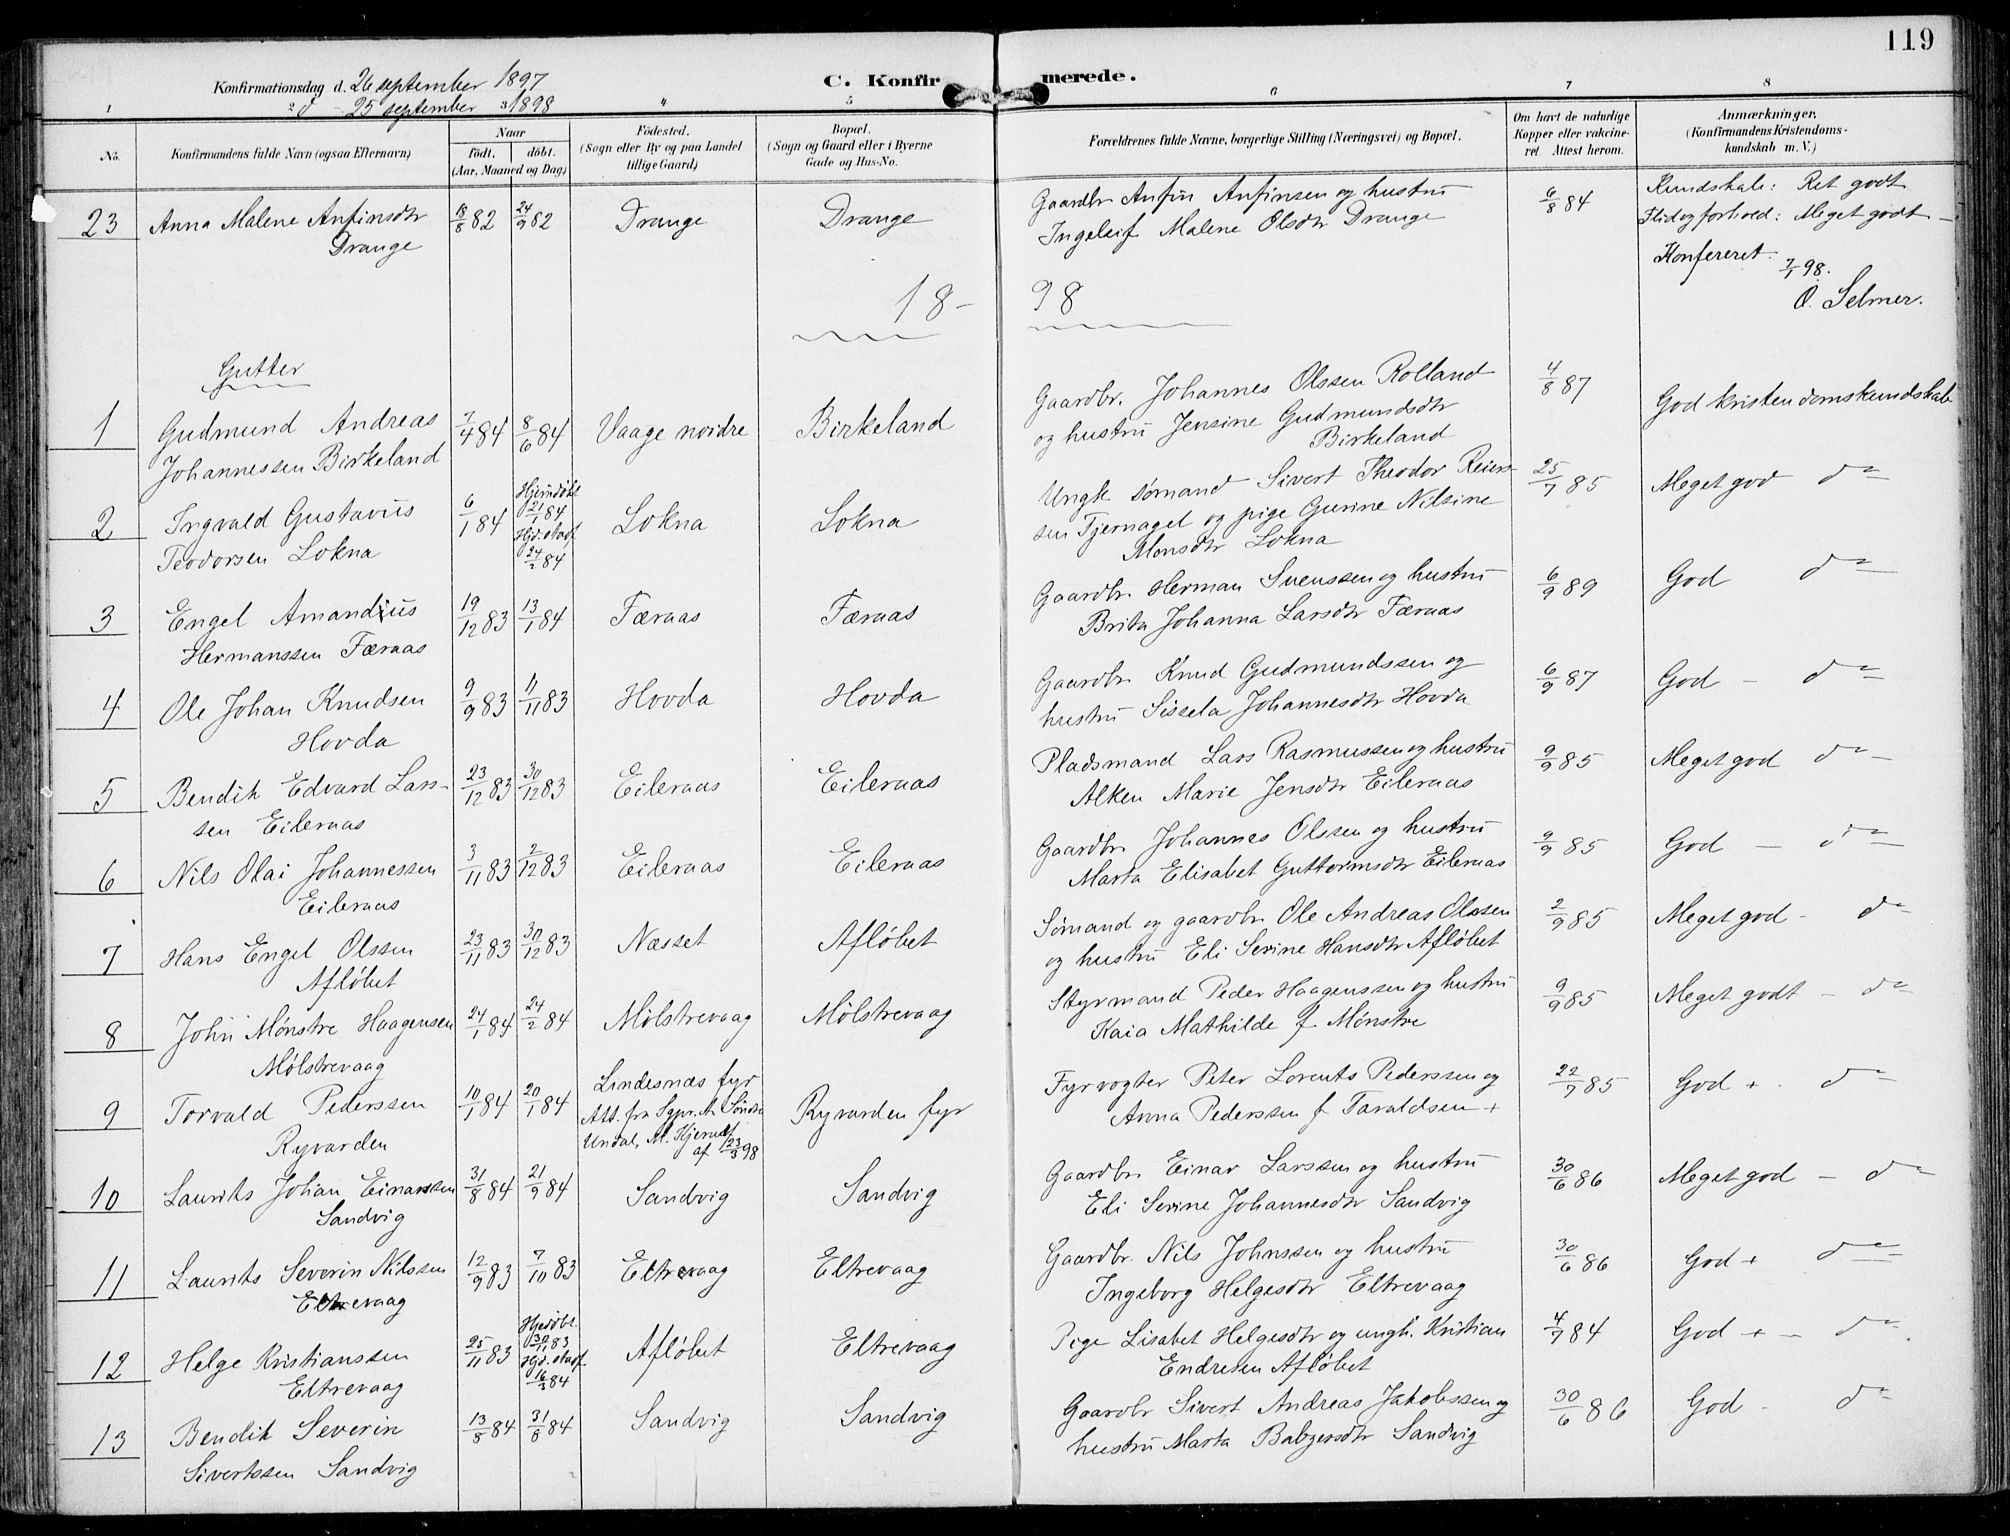 119
Konfirmationsdag d. 26 september 1897
C. Konfirmerede.
d 25 september 1898
1 2 3 4 5 6 7 8
No. Konfirmandens fulde Navn (ogsaa Efternavn) Naar Født. døbt. (Aar, Maaned og Dag) Fødested. (Sogn eller By og paa Landet tillige Gaard) Bopæl. (Sogn og Gaard eller i Byerne Gade og Hus-No. Forældrenes fulde Navne, borgerlige Stilling (Næringsvei) og Bopæl. Om havt de naturlige Kopper eller vakcineret. Attest herom. Anmærkninger, (Konfirmandens Kristendomskundskab m. V.)
23 Anna Malene Anfinsdtr 18/8 82 24/9 82 Drange Drange Gaardbr Anfin Anfinsen og hustru 6/8 84 Kundskab: Ret godt
Drange Ingeleif Malene Olsdtr Drange Flid og forhold: Meget godt -
Konfereret
7/1 98.
O. Selmer.
18- 98
Gutter
1 Gudmund Andreas 7/4 84 8/6 84 Vaage nordre Birkeland Gaardbr. Johannes Olssen Rolland 4/8 87 God kristendomskundskab
Johannessen Birkeland og hustru Jensine Gudmundsdtr
Birkeland
2 Ingvald Gustavus 6/1 84 Hjemdøbt 21/1 84 Lokna Lokna Ungk sømand Sivert Theodor Reiers- 25/7 85 Meget god do
Teodorsen Lokna Hjd. stadf 24/2 84 sen Tjernagel og pige Gurine Nilsine
Monsdtr Lokna
3 Engel Amandius 19/12 83 13/1 84 Færaas Færaas Gaardbr. Herman Svenssen og hustru 6/9 89 God do
Hermanssen Færaas Brita Johanna Larsdtr Færaas
4 Ole Johan Knudsen 9/9 83 11/11 83 Hovda Hovda Gaardbr. Knud Gudmundssen og 6/9 87 God - do
Hovda hustru Sissela Johannesdtr Hovda
5 Bendik Edvard Lass- 23/12 83 30/12 83 Eileraas Eileraas Pladsmand Lass Rasmussen og hustru 9/9 85 Meget god do -
sen Eileraas Alken Marie Jensdtr Eileraas
6 Nils Olai Johannessen 3/11 83 2/12 83 Eileraas Eileraas Gaardbr Johannes Olssen og hustru 9/9 85 God - do
Eileraas Marta Elisabet Guttormsdtr Eileraas
7 Hans Engel Olssen 23/11 83 30/12 83 Næsset Afløbet Sømand og gaardbr. Ole Andreas Olssen 2/9 85 Meget god - do
Afløbet og hustru Eli Serine Hansdtr Afløbet
8 John Mønstre Haagensen 24/1 84 24/2 84 Mølstrevaag Mølstrevaag Styrmand Peder Haagenssen og hustru 9/9 85 Meget godt - do
Mølstrevaag Kaia Mathilde f Mønstre
9 Torvald Pederssen 10/1 84 20/1 84 Lindesnæs fyr Ryvarden fyr Fyrvogter Peter Lorents Pederssen og 22/7 85 God + do
Ryvarden Att. fra Sgpr. til Søndre Undal, M. Hjerm af 23/3 98 Anna Pederssen f Taraldsen +
10 Laurits Johan Einarssen 31/8 84 21/9 84 Sandvig Sandvig Gaardbr. Einar Larssen og hustru 30/6 86 Meget god - do
Sandvig Eli Serine Johannesdtr Sandvig
11 Laurits Severin Nilssen 12/9 83 7/10 83 Eltrevaag Eltrevaag Gaardbr. Nils Johnssen og hustru 30/6 86 God + do
Eltrevaag Ingeborg Helgesdtr Eltrevaag
12 Helge Kristianssen 25/11 83 Hjedøbt. 30/11 83 Afløbet Eltrevaag Pige Lisabet Helgesdtr og ungk. Kristian 4/7 84 God + - do
Eltrevaag Hjd. stadf. 16/3 84 Endresen Afløbet
13 Bendik Severin 13/8 84 31/8 84 Sandvig Sandvig Gaardbr Sivert Andreas Jakobssen og 30/6 86 God - do
Sivertssen Sandvig hustru Marta Babzersdtr Sandvig